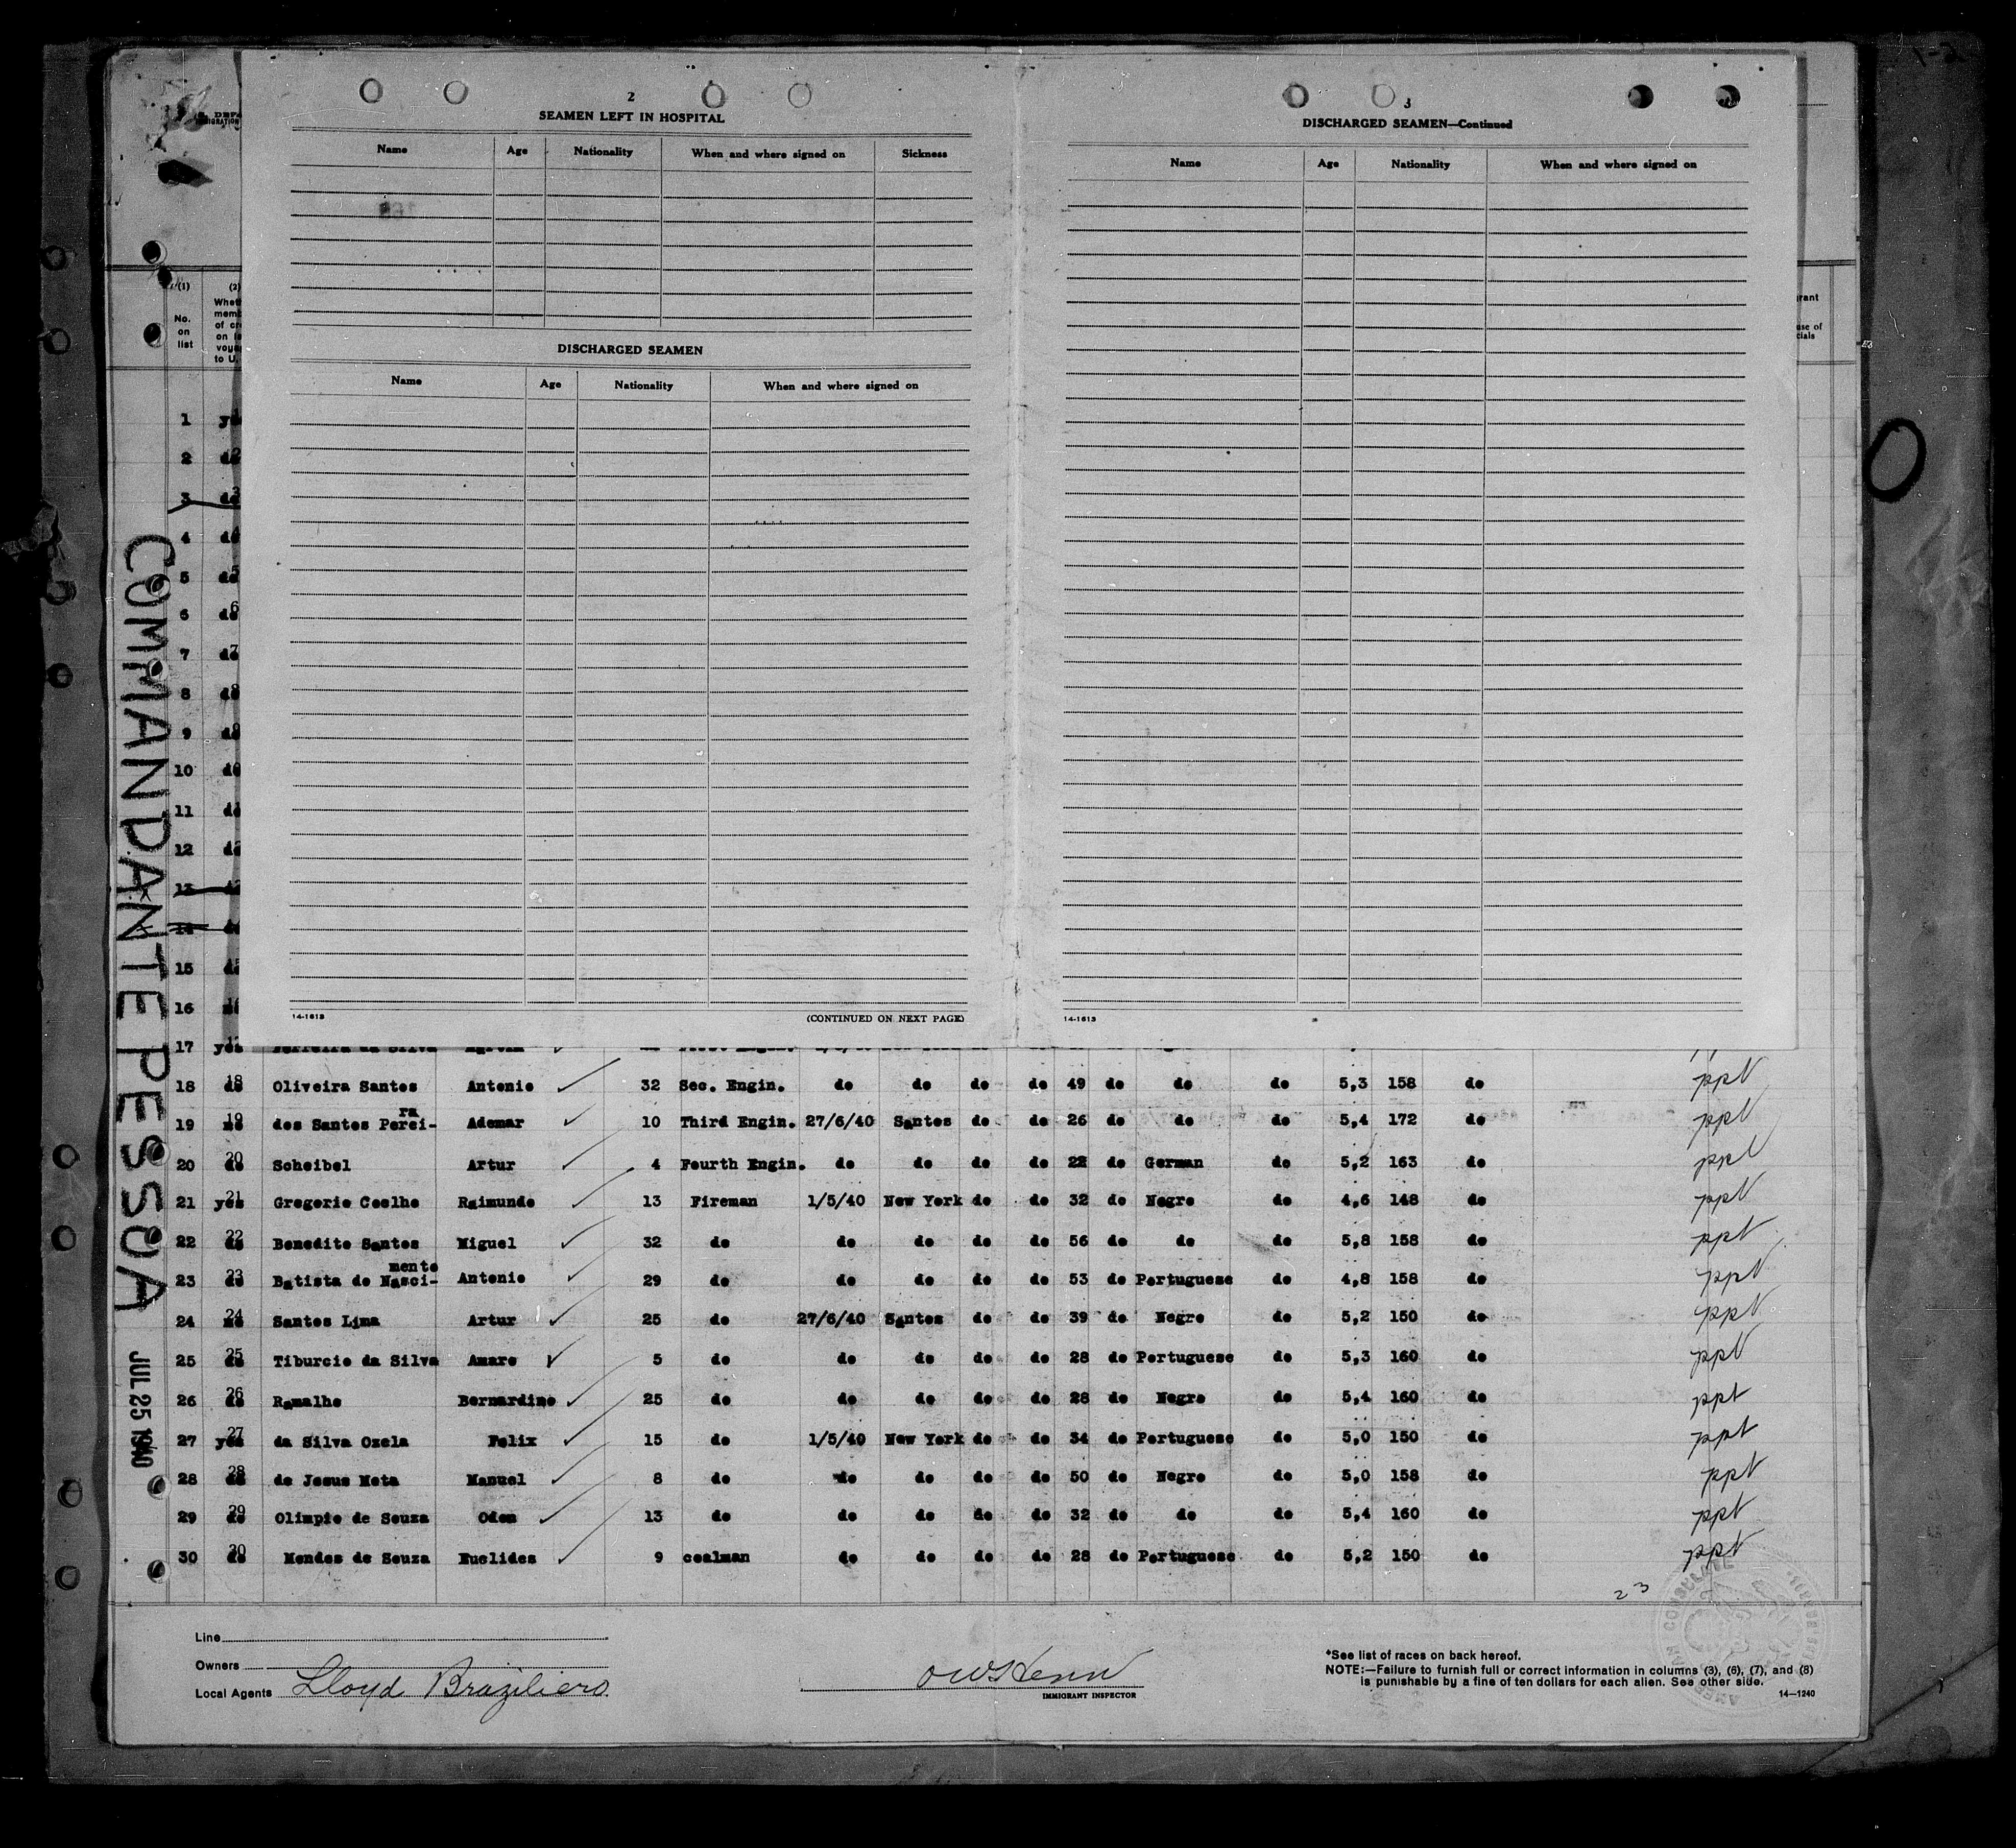 2
SEAMEN LEFT IN HOSPITAL
Name Age Nationality When and where signed on Sickness
DISCHARGED SEAMEN
Name Age Nationality When and where signed on
14-1613 (CONTINUED ON NEXT PAGE)
3
DISCHARGED SEAMEN—Continued
Name Age Nationality When and where signed on
14-1613
(1) (2)
No. on list
COMMANDANTE PESSOA
JUL 25 1940
1
2
3
4
5
6
7
8
9
10
11
12
13
14
15
16
17 yes
18 do Oliveira Santos Antonio 32 Sec. Engin. do do do do 49 do do do 5,3 158 do ppt
19 no dos Santos Perei-ra Ademar 10 Third Engin. 27/6/40 Santos do do 26 do do do 5,4 172 do ppt
20 do Scheibel Artur 4 Fourth Engin. do do do do 22 do German do 5,2 163 do ppt
21 yes Gregorio Coelho Raimundo 13 Fireman 1/5/40 New York do do 32 do Negro do 4,6 148 do ppt
22 do Benedito Santos Miguel 32 do do do do do 56 do do do 5,8 158 do ppt
23 do Batista do Nasci-mento Antonio 29 do do do do do 53 do Portuguese do 4,8 158 do ppt
24 no Santos Lima Artur 25 do 27/6/40 Santos do do 39 do Negro do 5,2 150 do ppt
25 do Tiburcio da Silva Amaro 5 do do do do do 28 do Portuguese do 5,3 160 do ppt
26 do Ramalho Bernardino 25 do do do do do 28 do Negro do 5,4 160 do ppt
27 yes da Silva Ozela Felix 15 do 1/5/40 New York do do 34 do Portuguese do 5,0 150 do ppt
28 do de Jesus Mota Manuel 8 do do do do do 50 do Negro do 5,0 158 do ppt
29 do Olimpio de Souza Odon 13 do do do do do 32 do do do 5,4 160 do ppt
30 do Mendes de Souza Euclides 9 coalman do do do do 28 do Portuguese do 5,2 150 do ppt
23
Line
Owners
Local Agents Lloyd Braziliero
IMMIGRANT INSPECTOR
*See list of races on back hereof.
NOTE:—Failure to furnish full or correct information in columns (3), (6), (7), and (8)
is punishable by a fine of ten dollars for each alien. See other side.
14—1240